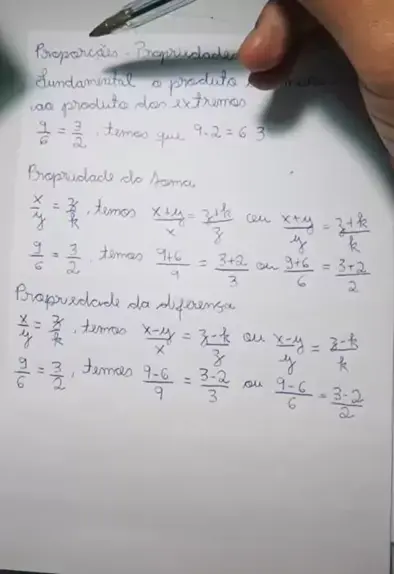 Proporções - Propriedades
fundamental o produto
ao produto dos extremos
9/6 = 3/2, temos que 9.2 = 6 3
Propriedade da soma
x/y = z/k, temos x+y/x = z+k/z ou x+y/y = z+k/k
9/6 = 3/2, temos 9+6/9 = 3+2/3 ou 9+6/6 = 3+2/2
Propriedade da diferença
x/y = z/k, temos x-y/x = z-k/z ou x-y/y = z-k/k
9/6 = 3/2, temos 9-6/9 = 3-2/3 ou 9-6/6 = 3-2/2